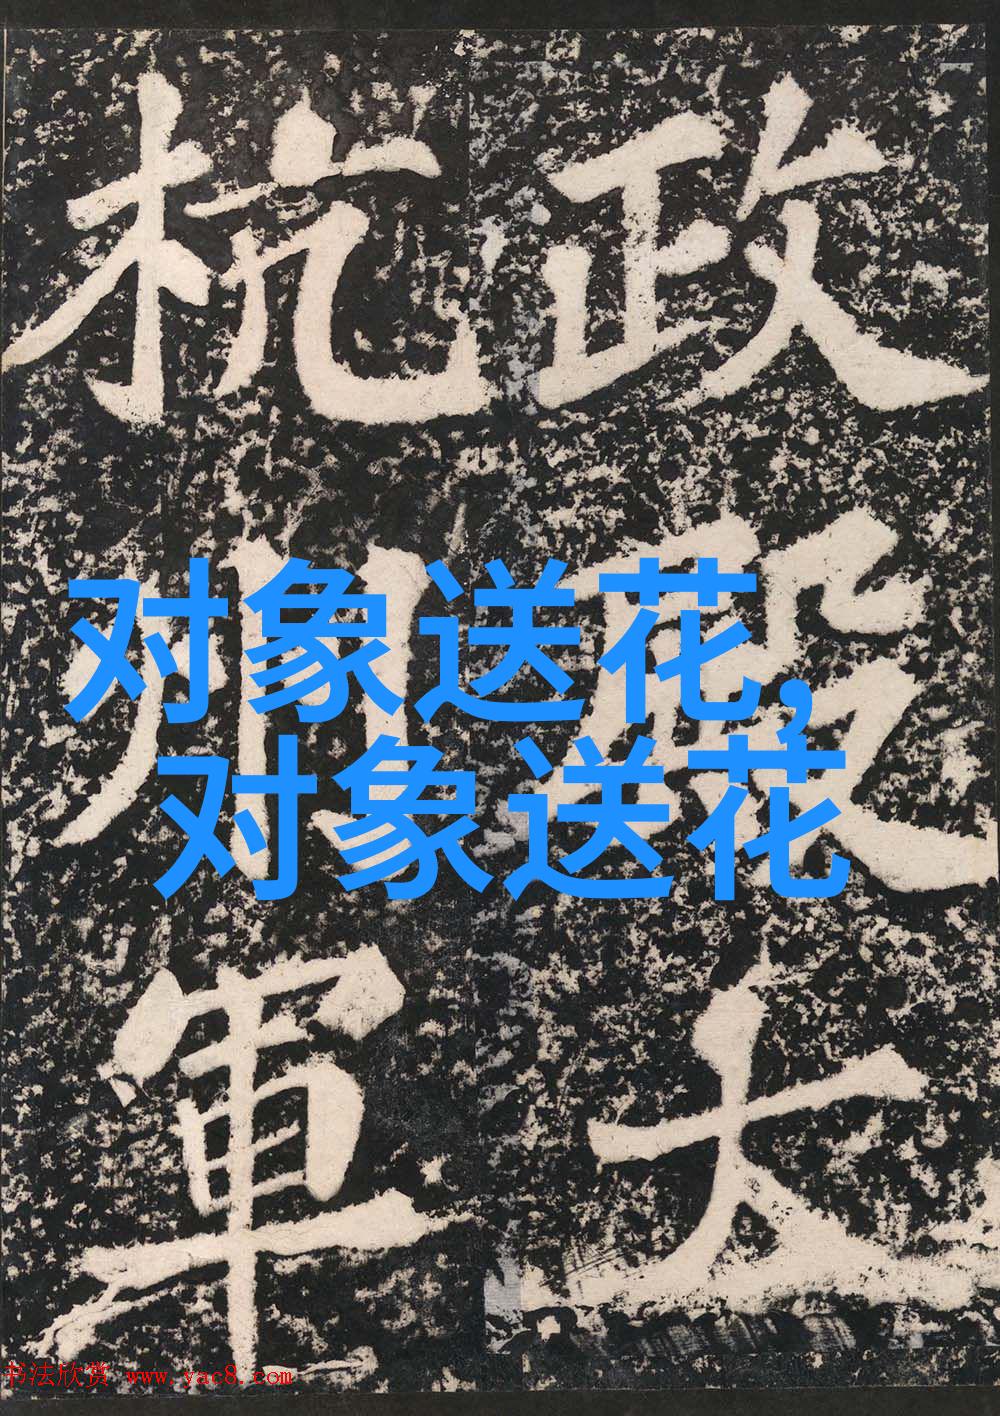 政殿大
杭州軍
对象送花,
对象送花
书法欣赏 www.yac8.com